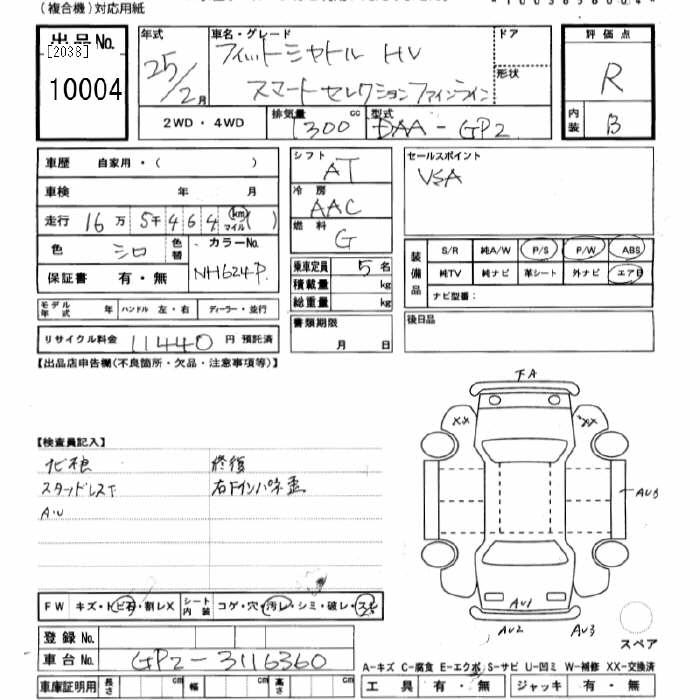 (複合機)対応用紙
出品No.
[2038]
10004
年式
25/2月
車名・グレード
フィットシャトル HV
スマートセレクションファインライン
ドア
形状
評価点
R
内装
B
2WD・4WD
排気量
1300cc
型式
DAA-GP2
車歴 自家用・( )
車検 年 月
走行 16万 5千 4 6 4 km マイル ( )
色 シロ 色替
カラーNo.
NH624-P
保証書 有・無
モデル年式
ハンドル 左・右
ディーラー・並行
リサイクル料金 11440円 預託済
シフト
AT
冷房
AAC
燃料
G
乗車定員 5名
積載量 kg
総重量 kg
書類期限
月 日
セールスポイント
VSA
装備品
S/R 純A/W P/S P/W ABS
純TV 純ナビ 革シート 外ナビ エアB
ナビ型番:
後日品
【出品店申告欄(不良箇所・欠品・注意事項等)】
【検査員記入】
ナビ不良
スタッドレス下
A・U
修復
右Fインパネ歪
FW キズ・トビ石・割レX
シート内装 コゲ・穴・汚レ・シミ・破レ・スレ
登録No.
車台No. GP2-3116360
車庫証明用 長さ cm 幅 cm 高さ cm
下A
XX
XX
AU3
AU1
AU2
AU3
スペア
A-キズ C-腐食 E-エクボ S-サビ U-凹ミ W-補修 XX-交換済
工具 有・無 ジャッキ 有・無